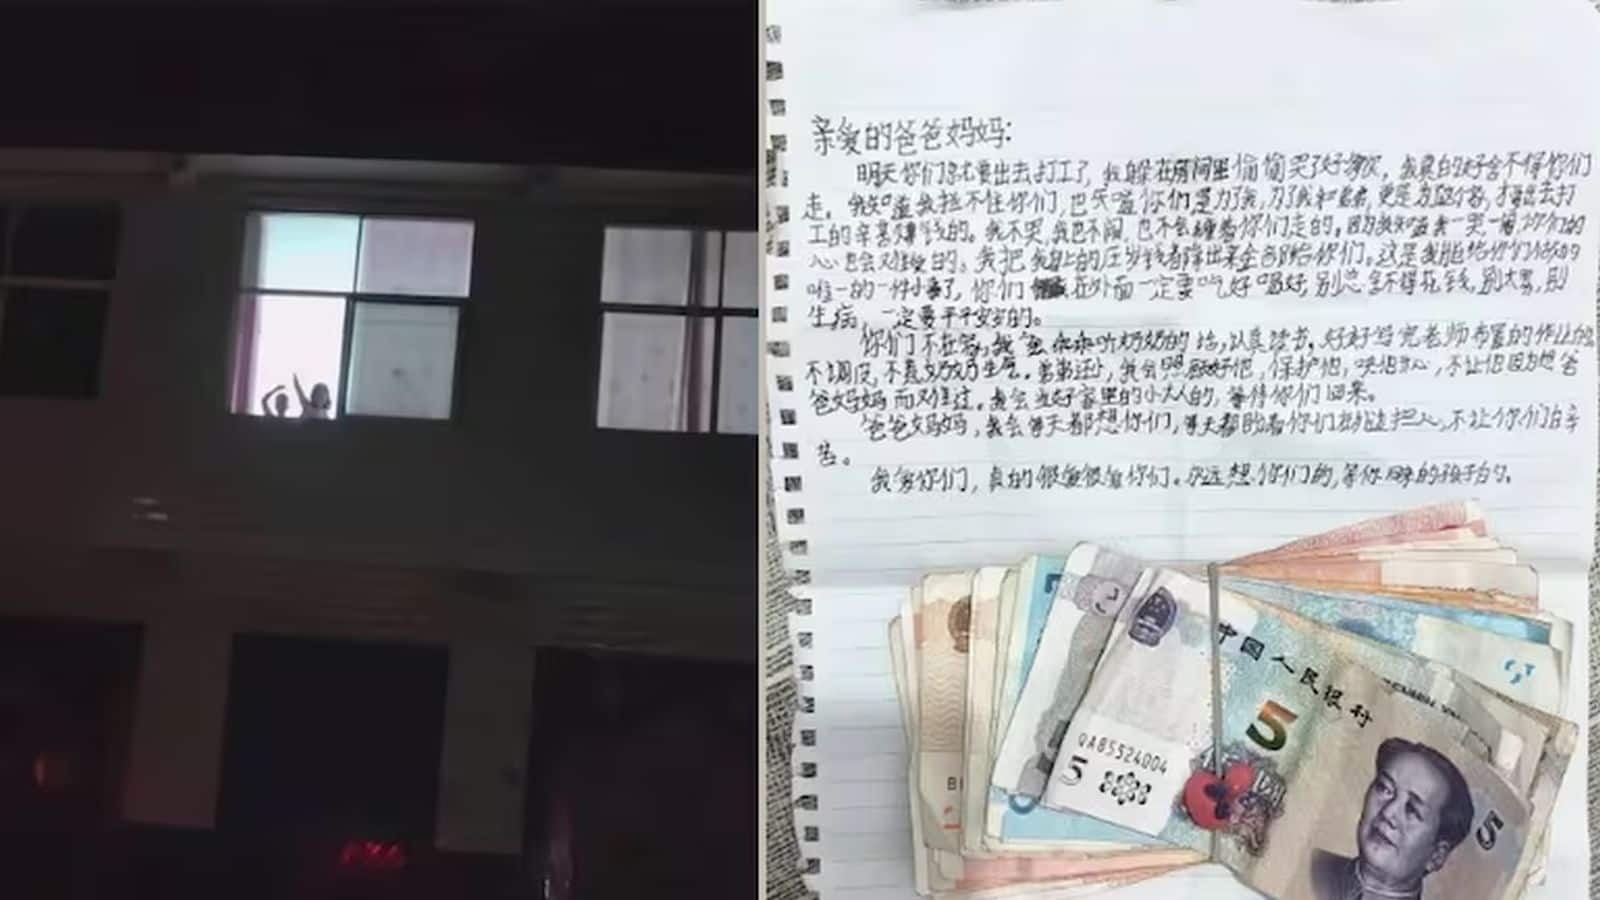 亲爱的爸爸妈妈:
明天你们就要出去打工了,我躲在房间里偷偷哭了好几次,我真的好舍不得你们
走。我知道我拉不住你们,也知道你们是为了我,为了我和弟弟,更是为这个家,才要出去打
工的辛苦赚钱的。我不哭,我也不闹,也不会缠着你们走的。因为我知道我一哭一闹,你们的
心也会难受的。我把我身上的压岁钱都拿出来全部给你们。这是我能给你们做的
唯一的一件小事了,你们在外面一定要吃好喝好,别总舍不得花钱,别太累,别
生病,一定要平平安安的。
你们不在家,我会乖乖听奶奶的话,认真读书,好好写完老师布置的作业的,
不调皮,不惹奶奶生气。弟弟还小,我会照顾好他,保护他,哄他开心,不让他因为想爸
爸妈妈而难过。我会当好家里的小大人的,等待你们回来。
爸爸妈妈,我会每天都想你们,每天都盼着你们,不让你们白辛
苦。
我爱你们,真的很爱很爱你们。永远想你们的,等你的孩子的。
中国人民银行
5
QA85524004
5
5